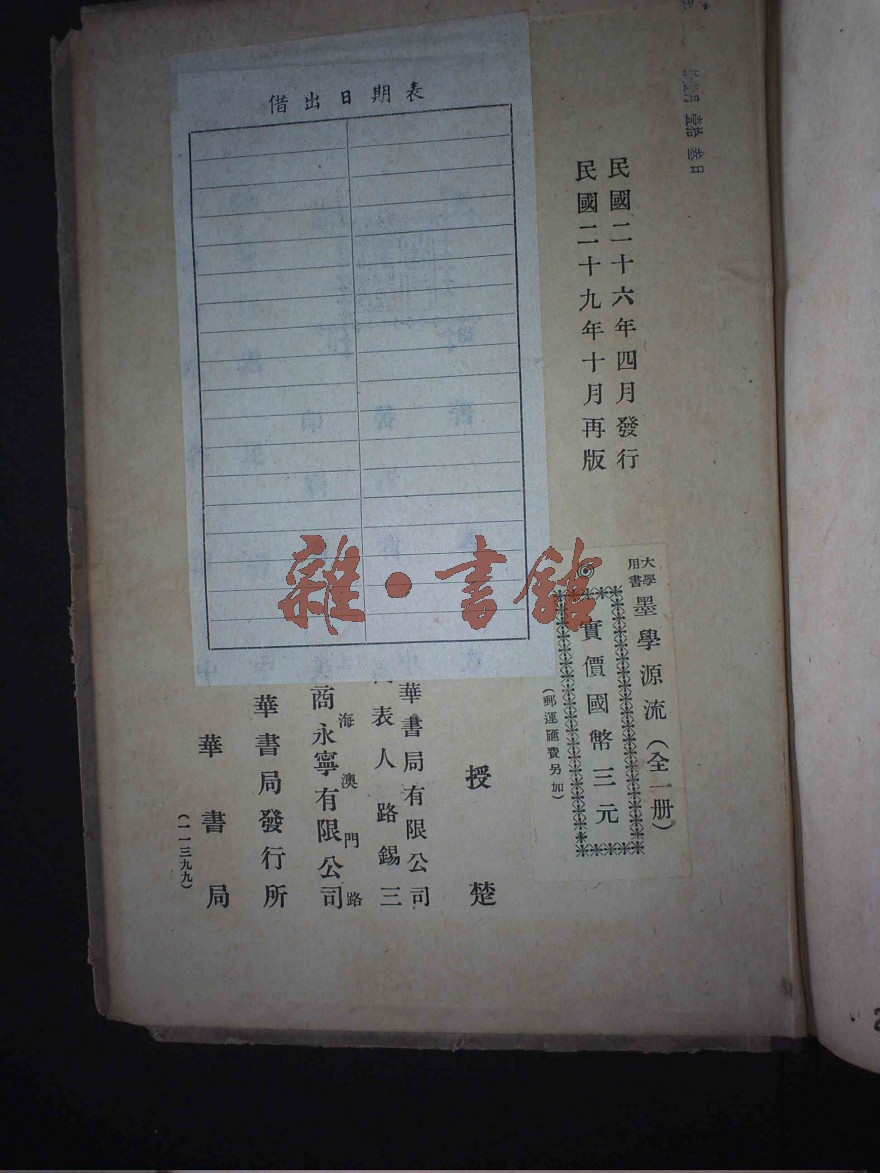 借出日期表
民國二十六年四月發行
民國二十九年十月再版
大學用書
墨學源流（全一册）
實價國幣三元
（郵運匯費另加）
授楚
華書局有限公司
表人路錫三
海澳門路
商永寧有限公司
華書局發行所
華書局
（一一三九九）
雜·書館